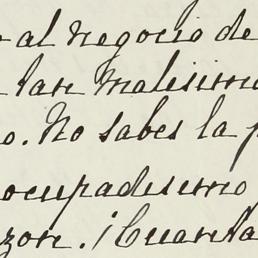 al negocio de
tan malisimo
o. No sabes la p
ocupadisimo
zon. ¡Cuanta